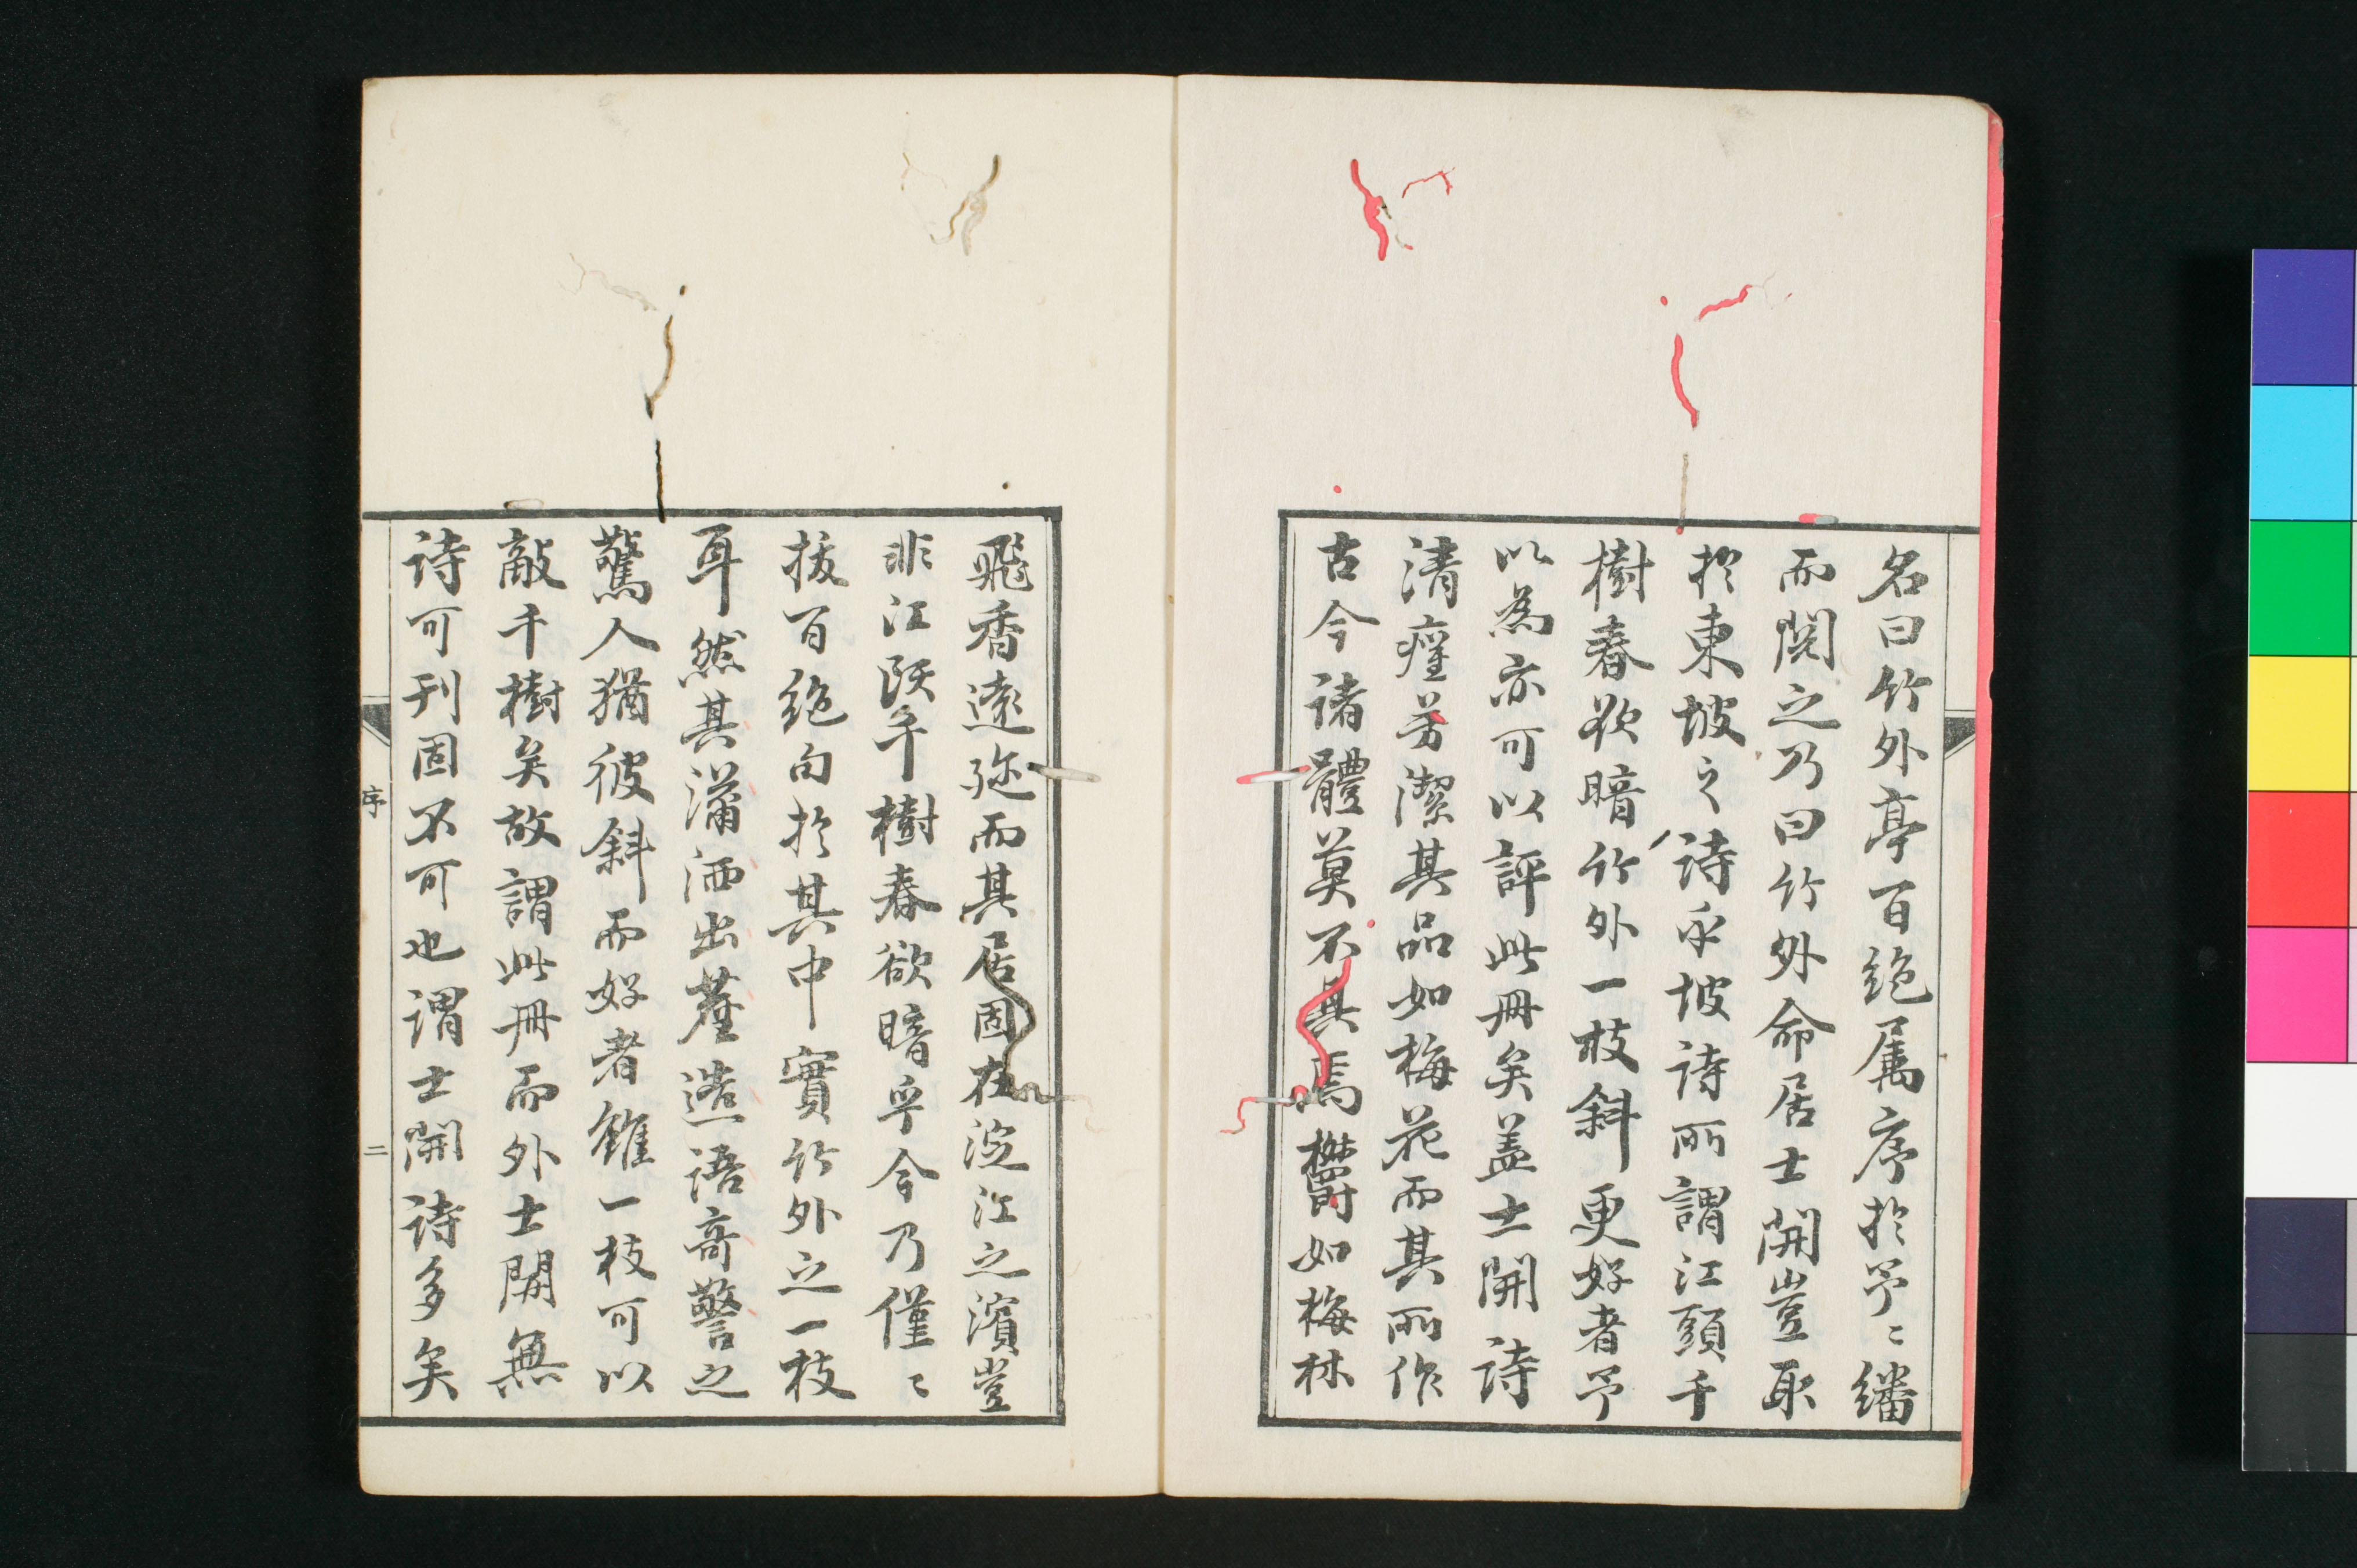 名曰竹外亭百絶属序於予〻繙
而閲之乃曰竹外命居士開豈取
於東坡之詩乎坡詩所謂江頭千
樹春欲暗竹外一枝斜更好者予
以為亦可以評此冊矣盖士開詩
清癯芳潔其品如梅花而其所作
古今諸體莫不具焉欝如梅林
飛香遠迩而其居固在淀江之濱豈
非江頭千樹春欲暗乎今乃僅〻
抜百絶句於其中實竹外之一枝
耳然其瀟洒出塵造語奇警之
驚人猶彼斜而好者雖一枝可以
敵千樹矣故謂此冊而外士開無
詩可刊固不可也謂士開詩多矣
序
二